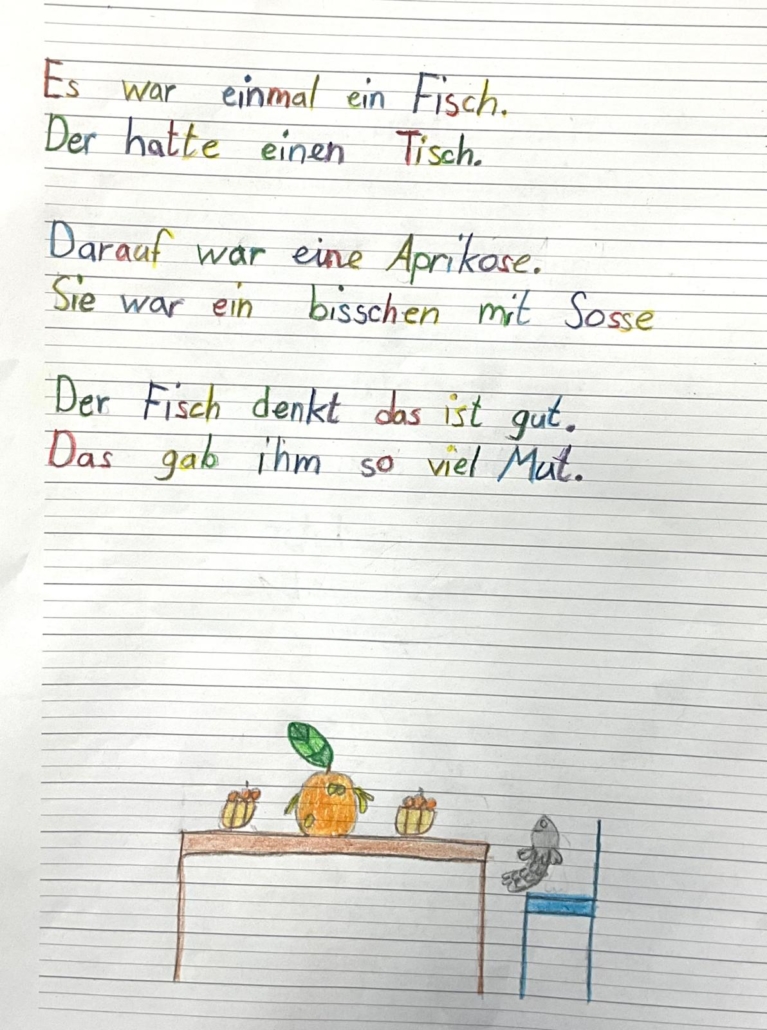 Es war einmal ein Fisch.
Der hatte einen Tisch.
Darauf war eine Aprikose.
Sie war ein bisschen mit Sosse
Der Fisch denkt das ist gut.
Das gab ihm so viel Mut.